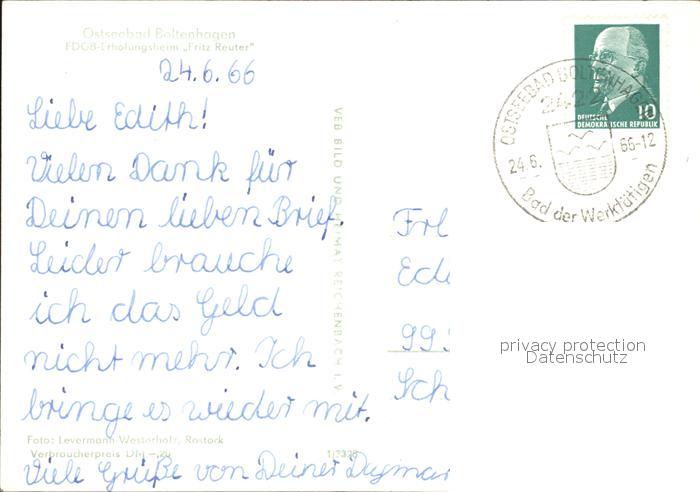 Ostseebad Boltenhagen
FDGB-Erholungsheim „Fritz Reuter"
24.6.66
Liebe Edith!
Vielen Dank für
Deinen lieben Brief.
Leider brauche
ich das Geld
nicht mehr. Ich
bringe es wieder mit.
Foto: Levermann-Westerholz, Rostock
Verbraucherpreis DM -,20
Viele Grüße von Deiner Dagmar
VEB BILD UND HEIMAT REICHENBACH I. V.
DEUTSCHE
DEMOKRATISCHE REPUBLIK
10
OSTSEEBAD BOLTENHAGEN
24.6. 66-12
Bad der Werktätigen
Frl
Ede
99
Sch
privacy protection
Datenschutz